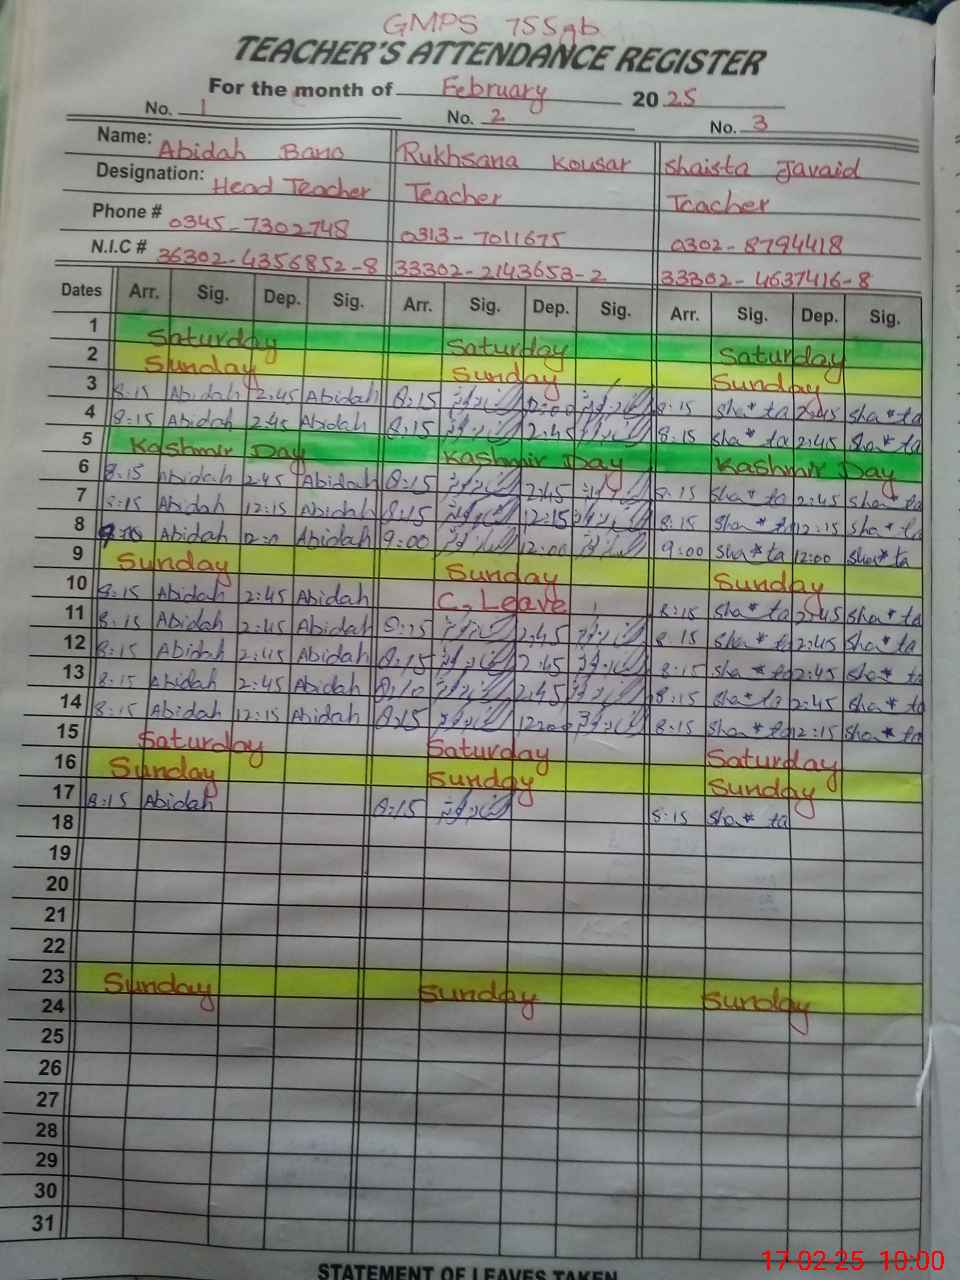 GMPS 755gb
TEACHER'S ATTENDANCE REGISTER
For the month of February 2025
No. 1 No. 2 No. 3
Name: Abidah Bano Rukhsana Kousar Shaista Javaid
Designation: Head Teacher Teacher Teacher
Phone # 0345-7302748 0313-7011675 0302-8794418
N.I.C # 36302-4356852-8 33302-2143653-2 33302-4637416-8
Dates Arr. Sig. Dep. Sig. Arr. Sig. Dep. Sig. Arr. Sig. Dep. Sig.
1 Saturday Saturday Saturday
2 Sunday Sunday Sunday
3 8:15 Abidah 2:45 Abidah 8:15 8:15 sha* ta 2:45 sha* ta
4 8:15 Abidah 2:45 Abidah 8:15 2:45 8:15 sha* ta 2:45 sha* ta
5 Kashmir Day Kashmir Day Kashmir Day
6 8:15 Abidah 2:45 Abidah 8:15 2:45 8:15 sha* ta 2:45 sha* ta
7 8:15 Abidah 12:15 Abidah 8:15 12:15 8:15 sha* ta 12:15 sha* ta
8 Abidah Abidah 9:00 12:00 9:00 sha* ta 12:00 sha* ta
9 Sunday Sunday Sunday
10 8:15 Abidah 2:45 Abidah C. Leave 8:15 sha* ta 2:45 sha* ta
11 8:15 Abidah 2:45 Abidah 2:45 8:15 sha* ta 2:45 sha* ta
12 8:15 Abidah 2:45 Abidah 8:15 2:45 8:15 sha* ta 2:45 sha* ta
13 8:15 Abidah 2:45 Abidah 2:45 8:15 sha* ta 2:45 sha* ta
14 8:15 Abidah 12:15 Abidah 8:15 8:15 sha* ta 12:15 sha* ta
15 Saturday Saturday Saturday
16 Sunday Sunday Sunday
17 8:15 Abidah 8:15 8:15 sha* ta
18
19
20
21
22
23 Sunday Sunday Sunday
24
25
26
27
28
29
30
31
STATEMENT OF LEAVES TAKEN
17-02-25 10:00